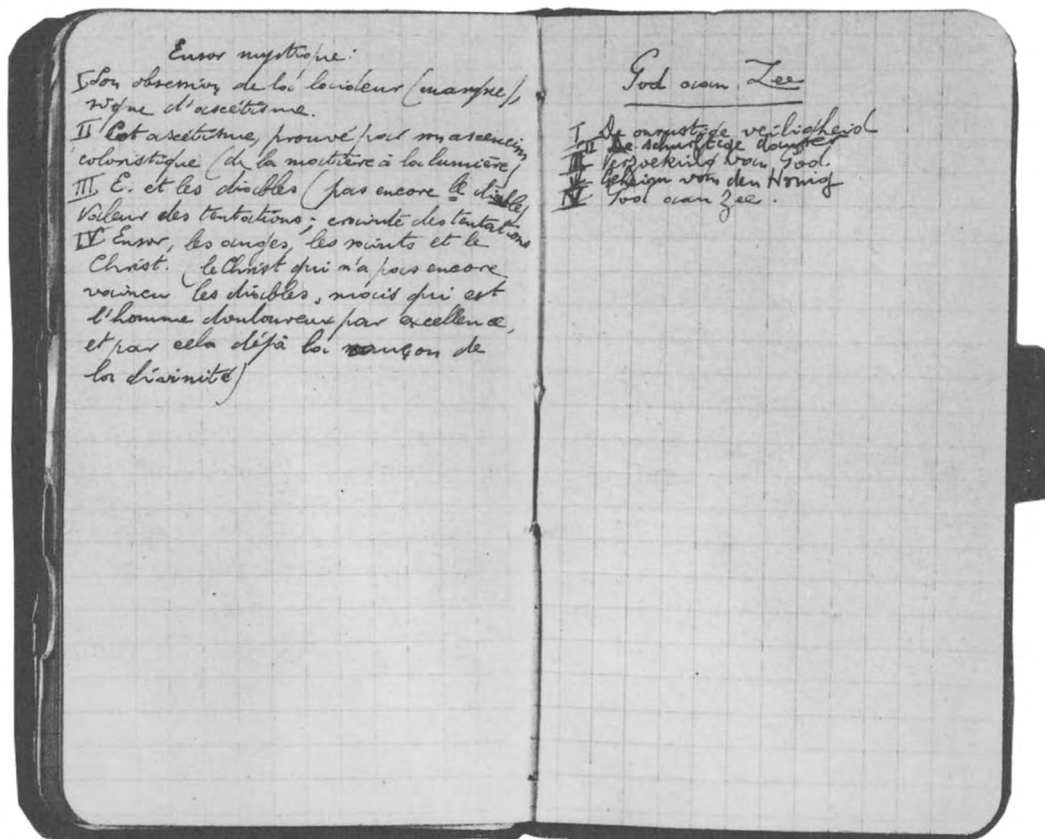 Ensor mystique:
I Son obsession de la laideur (masque),
signe d'ascétisme.
II Cet ascétisme, prouvé par son ascension
coloristique (de la matière à la lumière)
III. E. et les diables (pas encore le diable)
Valeur des tentations; crainte des tentations
IV Ensor, les anges, les saints et le
Christ. (le Christ qui n'a pas encore
vaincu les diables, mais qui est
l'homme douloureux par excellence,
et par cela déjà la rançon de
la divinité)
God aan Zee
I De onrustige veiligheid
II De schurftige danser
III Verzoeking van God.
Geheim van den Honig
God aan Zee.